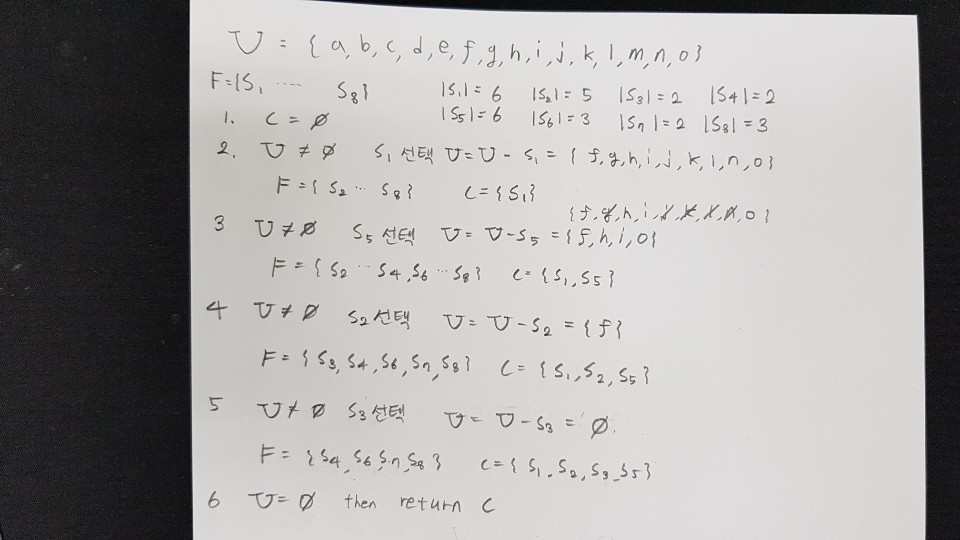 U = { a, b, c, d, e, f, g, h, i, j, k, l, m, n, o }
F = { S₁ ⋯ S₈ } |S₁| = 6 |S₂| = 5 |S₃| = 2 |S4| = 2
|S₅| = 6 |S₆| = 3 |S₇| = 2 |S₈| = 3
1. C = ∅
2. U ≠ ∅ S₁ 선택 U = U - S₁ = { f, g, h, i, j, k, l, n, o }
F = { S₂ ⋯ S₈ } C = { S₁ }
{ f, g, h, i, j, k, l, n, o }
3 U ≠ ∅ S₅ 선택 U = U - S₅ = { f, h, i, o }
F = { S₂ ⋯ S₄, S₆ ⋯ S₈ } C = { S₁, S₅ }
4 U ≠ ∅ S₂ 선택 U = U - S₂ = { f }
F = { S₃, S₄, S₆, S₇, S₈ } C = { S₁, S₂, S₅ }
5 U ≠ ∅ S₃ 선택 U = U - S₃ = ∅.
F = { S₄, S₆, S₇, S₈ } C = { S₁, S₂, S₃, S₅ }
6 U = ∅ then return C